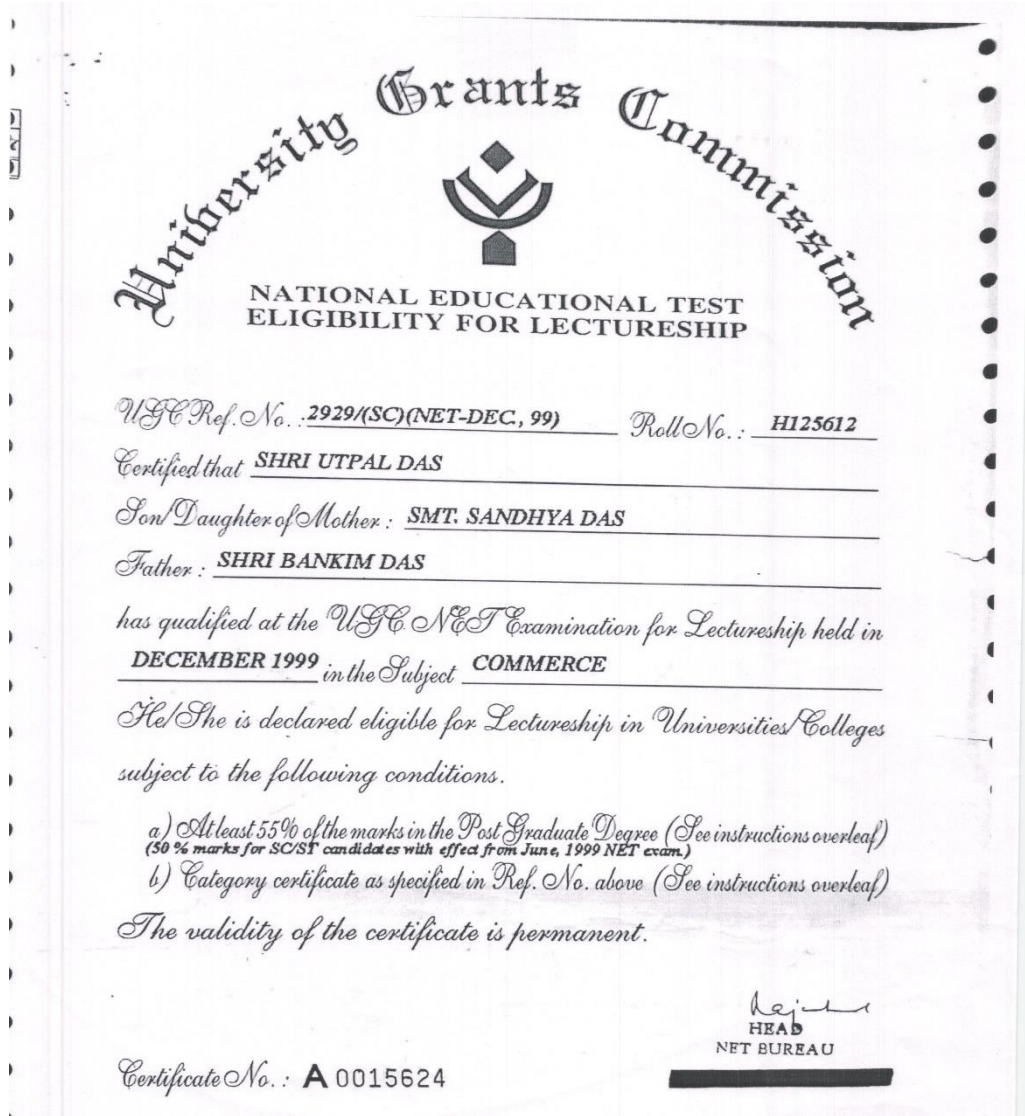 University Grants Commission
NATIONAL EDUCATIONAL TEST
ELIGIBILITY FOR LECTURESHIP
UGC Ref. No. : 2929/(SC)(NET-DEC., 99) Roll No. : H125612
Certified that SHRI UTPAL DAS
Son/Daughter of Mother : SMT. SANDHYA DAS
Father : SHRI BANKIM DAS
has qualified at the UGC NET Examination for Lectureship held in
DECEMBER 1999 in the Subject COMMERCE
He/She is declared eligible for Lectureship in Universities/Colleges
subject to the following conditions.
a) At least 55% of the marks in the Post Graduate Degree (See instructions overleaf)
(50 % marks for SC/ST candidates with effect from June, 1999 NET exam.)
b) Category certificate as specified in Ref. No. above (See instructions overleaf)
The validity of the certificate is permanent.
HEAD
NET BUREAU
Certificate No. : A 0015624